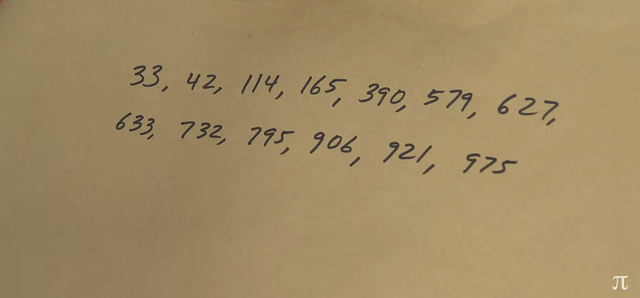 33, 42, 114, 165, 390, 579, 627,
633, 732, 795, 906, 921, 975
π